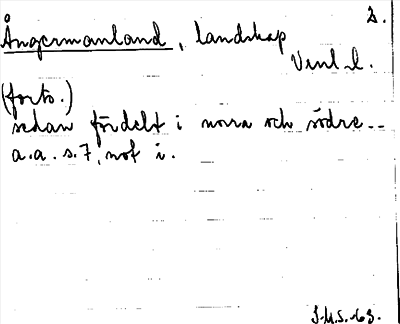 2.
Ångermanland, landskap
Vnl.l.
(forts.)
sedan fördelt i norra och södre--
a.a. s.7, not i.
S.M.S. -63.